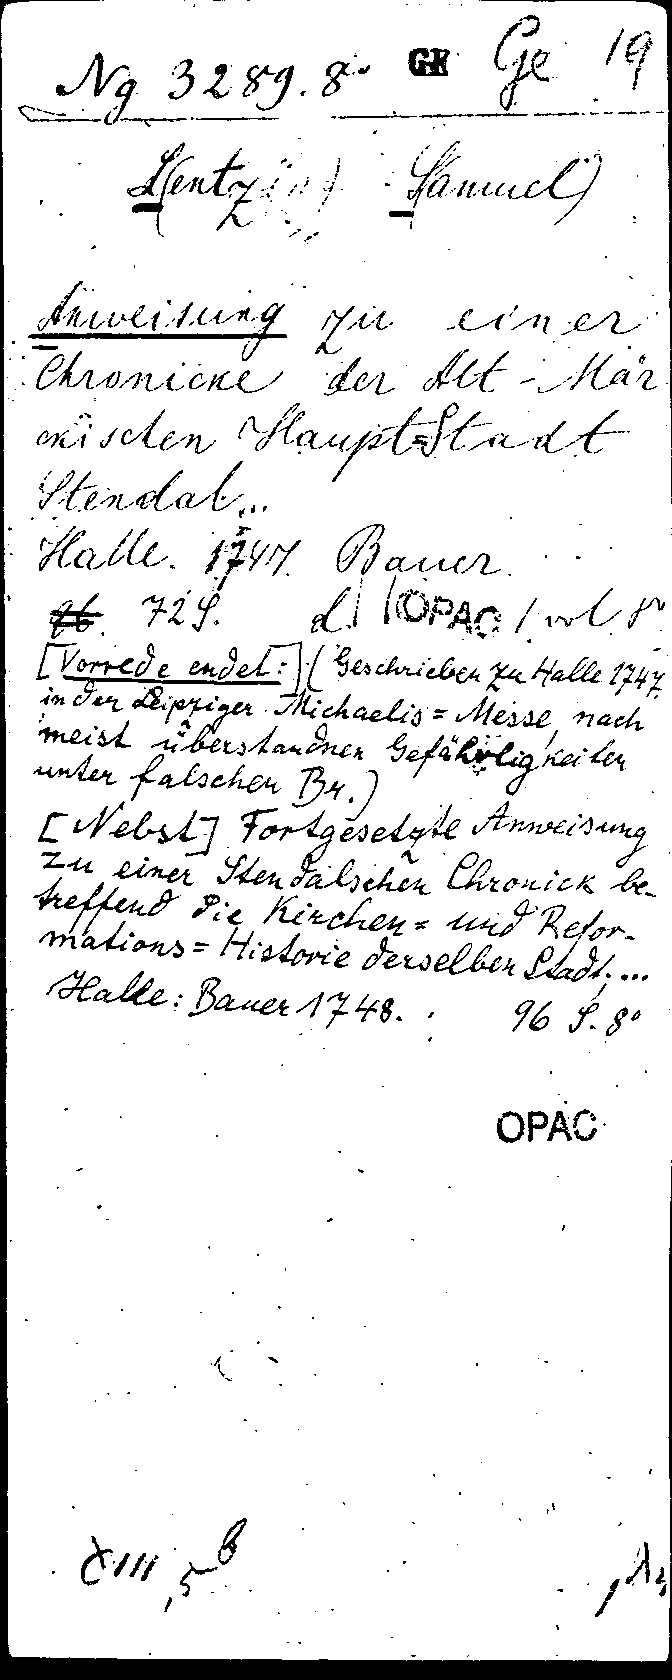 Ng 3289. 8° GK Ge 19
L(entz Samuel)
Anweisung zu einer
Chronicke der Alt-Mär
ckischen Haupt=Stadt
Stendal...
Halle. 1747. Bauer.
96. 72 S. d. OPAC 1 vol 8°
[Vorrede endet:] (Geschrieben zu Halle 1747.
in der Leipziger Michaelis=Messe, nach
meist überstandnen Gefährligkeiten
unter falschen Br.)
[Nebst] Fortgesetzte Anweisung
zu einer Stendalschen Chronick be-
treffend die Kirchen= und Refor-
mations=Historie derselben Stadt; ...
Halle: Bauer 1748. 96 S. 8°
OPAC